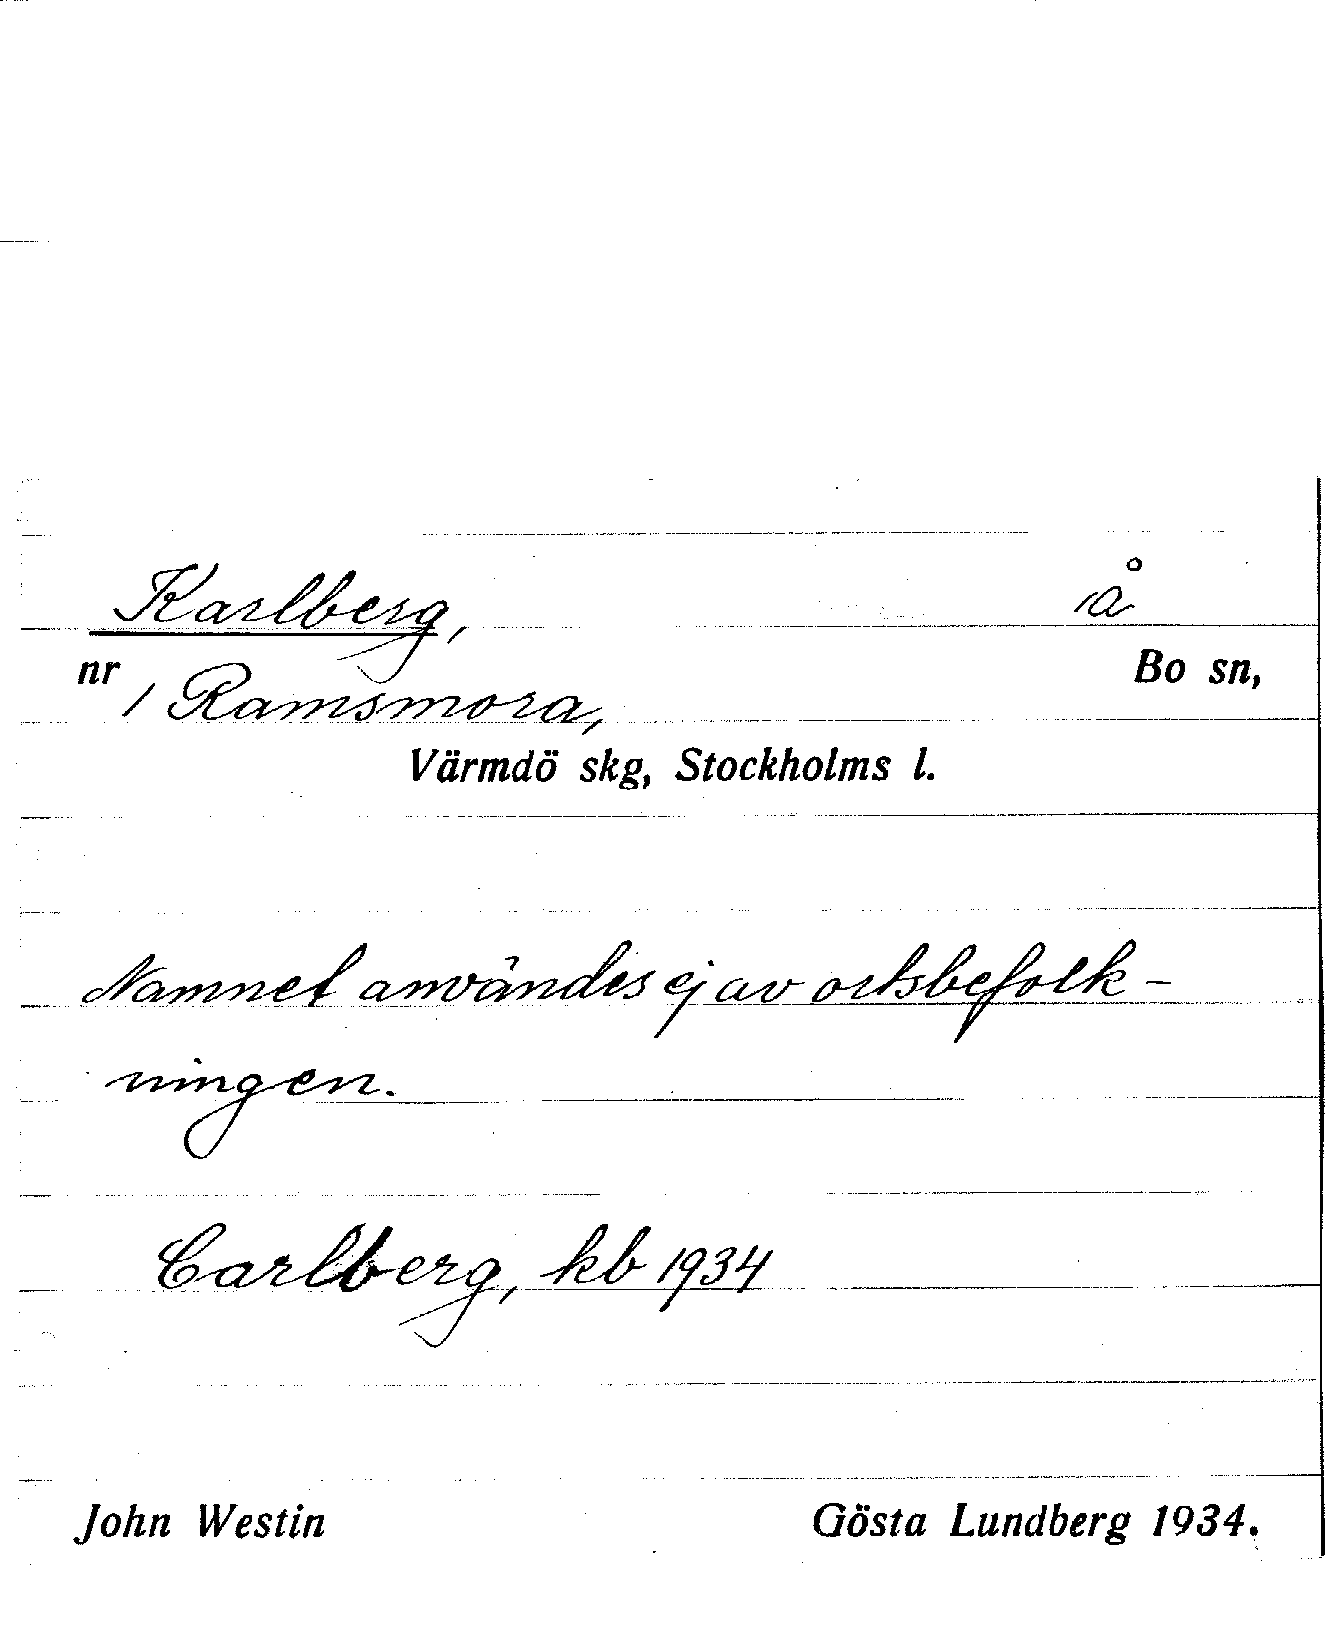 Karlberg, å
nr 1 Ramsmora, Bo sn,
Värmdö skg, Stockholms l.
Namnet användes ej av ortsbefolk-
ningen.
Carlberg, kb 1934
John Westin Gösta Lundberg 1934.